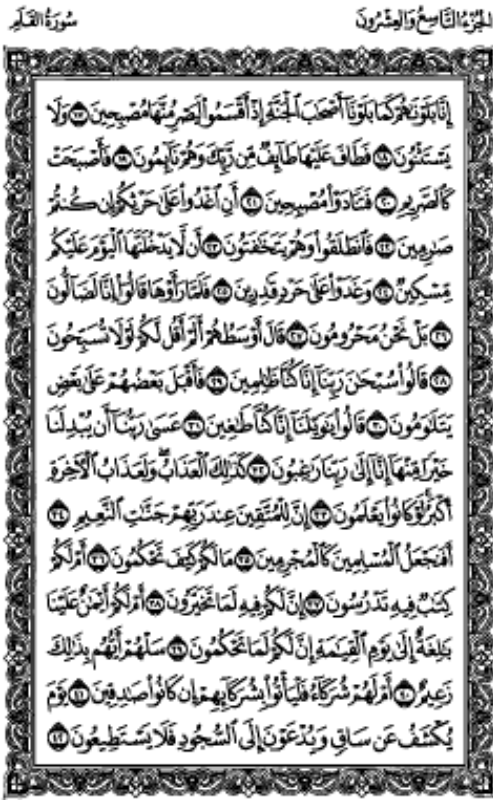 الجُزْءُ التَّاسِعُ وَالعِشْرُونَ
سُورَةُ القَلَمِ
إِنَّا بَلَوْنَٰهُمْ كَمَا بَلَوْنَآ أَصْحَٰبَ ٱلْجَنَّةِ إِذْ أَقْسَمُوا۟ لَيَصْرِمُنَّهَا مُصْبِحِينَ ١٧ وَلَا
يَسْتَثْنُونَ ١٨ فَطَافَ عَلَيْهَا طَآئِفٌ مِّن رَّبِّكَ وَهُمْ نَآئِمُونَ ١٩ فَأَصْبَحَتْ
كَٱلصَّرِيمِ ٢٠ فَتَنَادَوْا۟ مُصْبِحِينَ ٢١ أَنِ ٱغْدُوا۟ عَلَىٰ حَرْثِكُمْ إِن كُنتُمْ
صَٰرِمِينَ ٢٢ فَٱنطَلَقُوا۟ وَهُمْ يَتَخَٰفَتُونَ ٢٣ أَن لَّا يَدْخُلَنَّهَا ٱلْيَوْمَ عَلَيْكُم
مِّسْكِينٌ ٢٤ وَغَدَوْا۟ عَلَىٰ حَرْدٍ قَٰدِرِينَ ٢٥ فَلَمَّا رَأَوْهَا قَالُوٓا۟ إِنَّا لَضَآلُّونَ
٢٦ بَلْ نَحْنُ مَحْرُومُونَ ٢٧ قَالَ أَوْسَطُهُمْ أَلَمْ أَقُل لَّكُمْ لَوْلَا تُسَبِّحُونَ
٢٨ قَالُوا۟ سُبْحَٰنَ رَبِّنَآ إِنَّا كُنَّا ظَٰلِمِينَ ٢٩ فَأَقْبَلَ بَعْضُهُمْ عَلَىٰ بَعْضٍ
يَتَلَٰوَمُونَ ٣٠ قَالُوا۟ يَٰوَيْلَنَآ إِنَّا كُنَّا طَٰغِينَ ٣١ عَسَىٰ رَبُّنَآ أَن يُبْدِلَنَا
خَيْرًا مِّنْهَآ إِنَّآ إِلَىٰ رَبِّنَا رَٰغِبُونَ ٣٢ كَذَٰلِكَ ٱلْعَذَابُ ۖ وَلَعَذَابُ ٱلْأَخِرَةِ
أَكْبَرُ ۚ لَوْ كَانُوا۟ يَعْلَمُونَ ٣٣ إِنَّ لِلْمُتَّقِينَ عِندَ رَبِّهِمْ جَنَّٰتِ ٱلنَّعِيمِ ٣٤
أَفَنَجْعَلُ ٱلْمُسْلِمِينَ كَٱلْمُجْرِمِينَ ٣٥ مَا لَكُمْ كَيْفَ تَحْكُمُونَ ٣٦ أَمْ لَكُمْ
كِتَٰبٌ فِيهِ تَدْرُسُونَ ٣٧ إِنَّ لَكُمْ فِيهِ لَمَا تَخَيَّرُونَ ٣٨ أَمْ لَكُمْ أَيْمَٰنٌ عَلَيْنَا
بَٰلِغَةٌ إِلَىٰ يَوْمِ ٱلْقِيَٰمَةِ ۙ إِنَّ لَكُمْ لَمَا تَحْكُمُونَ ٣٩ سَلْهُمْ أَيُّهُم بِذَٰلِكَ
زَعِيمٌ ٤٠ أَمْ لَهُمْ شُرَكَآءُ فَلْيَأْتُوا۟ بِشُرَكَآئِهِمْ إِن كَانُوا۟ صَٰدِقِينَ ٤١ يَوْمَ
يُكْشَفُ عَن سَاقٍ وَيُدْعَوْنَ إِلَى ٱلسُّجُودِ فَلَا يَسْتَطِيعُونَ ٤٢